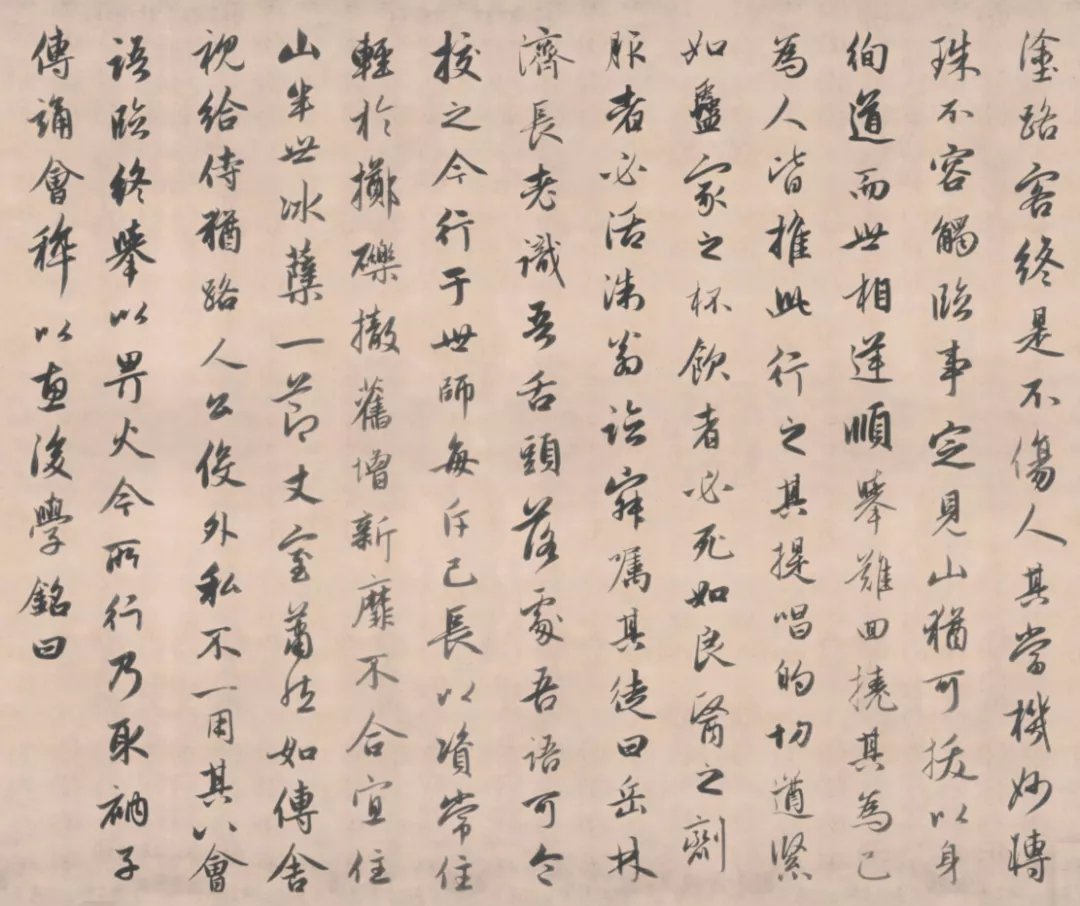 塗路客終是不傷人其當機妙轉
珠不容觸臨事定見山猶可拔以身
徇道而世相逆順舉難回撓其為己
為人皆推此行之其提唱的切遒緊
如蠱家之杯飲者必死如良醫之劑
服者必活洙翁訟寐囑其徒曰岳林
濟長老識吾舌頭落處吾語可令
挍之今行于世師每斥己長以資常住
輕於擲礫撤舊增新靡不合宜住
山半世冰蘗一節丈室蕭然如傳舍
視給侍猶路人公役外私不一用其八會
語臨終舉以畀火今所行乃耴衲子
傳誦會稡以惠後學銘曰